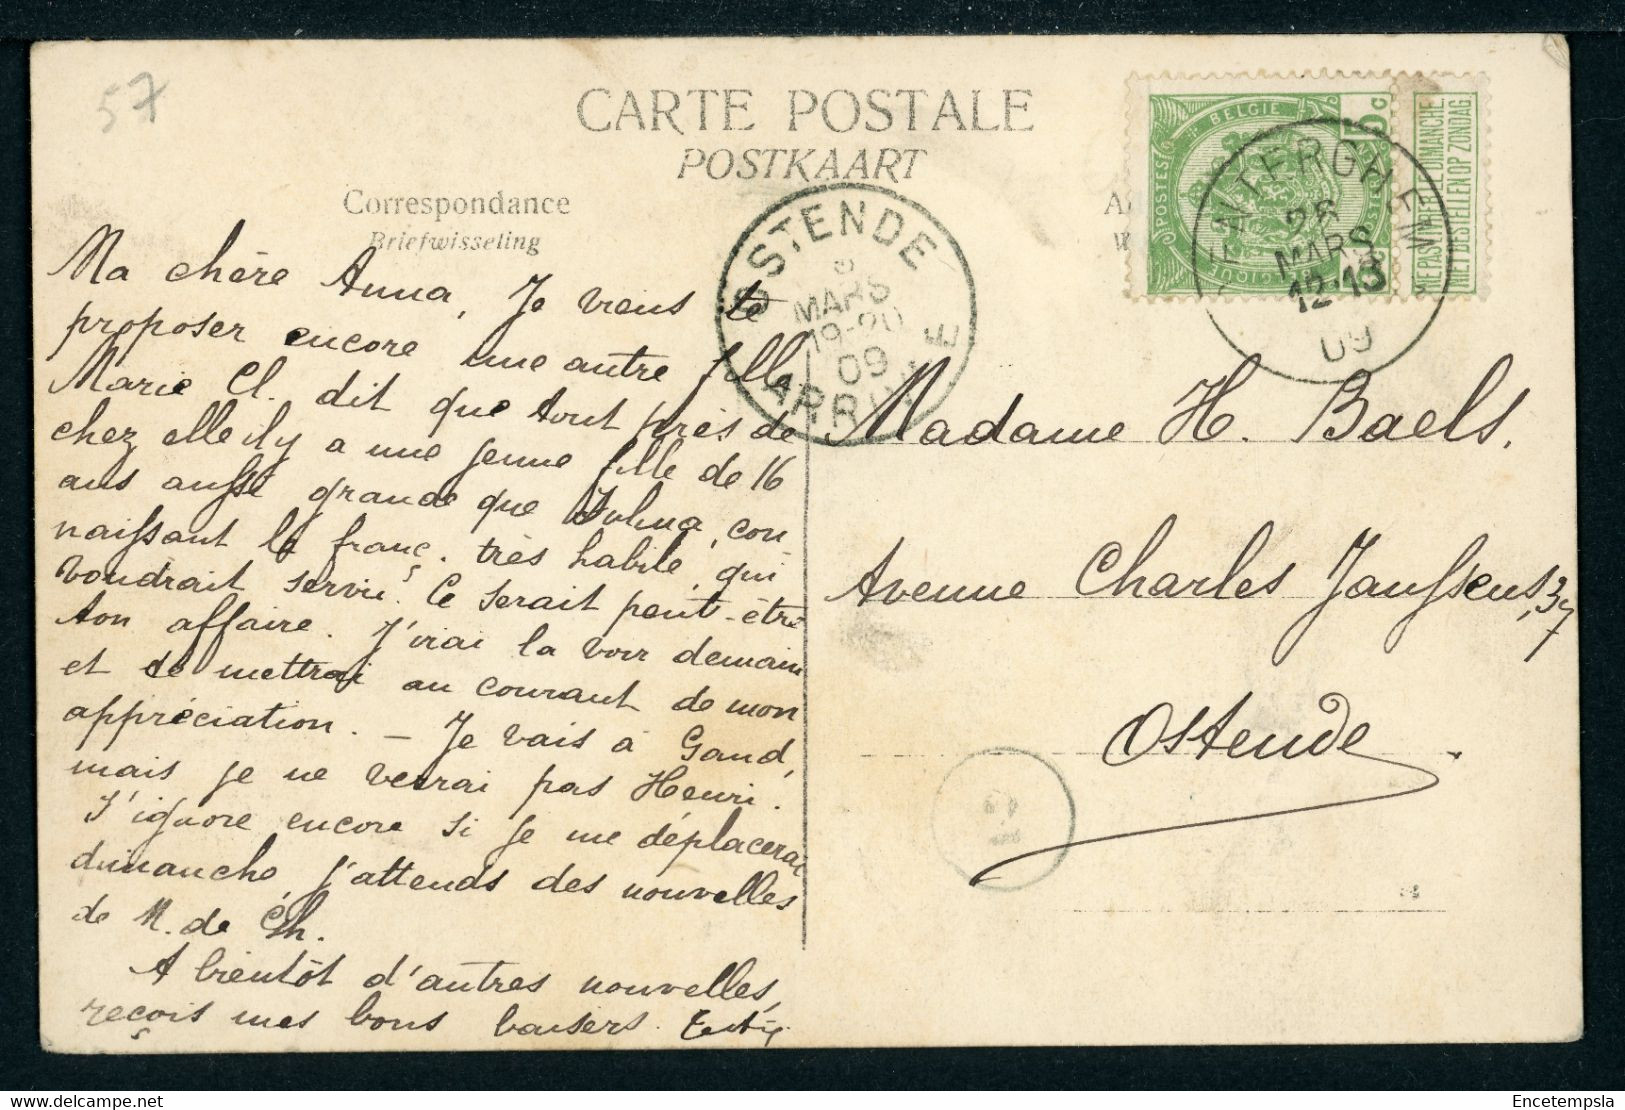 57
CARTE POSTALE
POSTKAART
Correspondance
Briefwisseling
Ma chère Anna, Je viens te
proposer encore une autre fille
Marie Cl. dit que tout près de
chez elle il y a une jeune fille de 16
ans aussi grande que con
naissant le franç. très habile, qui
voudrait servir. Ce serait peut-être
ton affaire. J'irai la voir demain
et te mettrai au courant de mon
appréciation. – Je vais à Gand,
mais je ne verrai pas Henri.
J'ignore encore si je me déplacerai
dimanche, j'attends des nouvelles
de M. de Gh.
A bientôt d'autres nouvelles,
reçois mes bons baisers.
OSTENDE
MARS
19-20
09
ARRIVEE
BELGIE
POSTES
5c
BELGIQUE
NE PAS LIVRER LE DIMANCHE
NIET BESTELLEN OP ZONDAG
MARS
12-13
09
Madame H. Baels.
Avenue Charles Janssens, 37
Ostende.
Encetempsla
www.delcampe.net